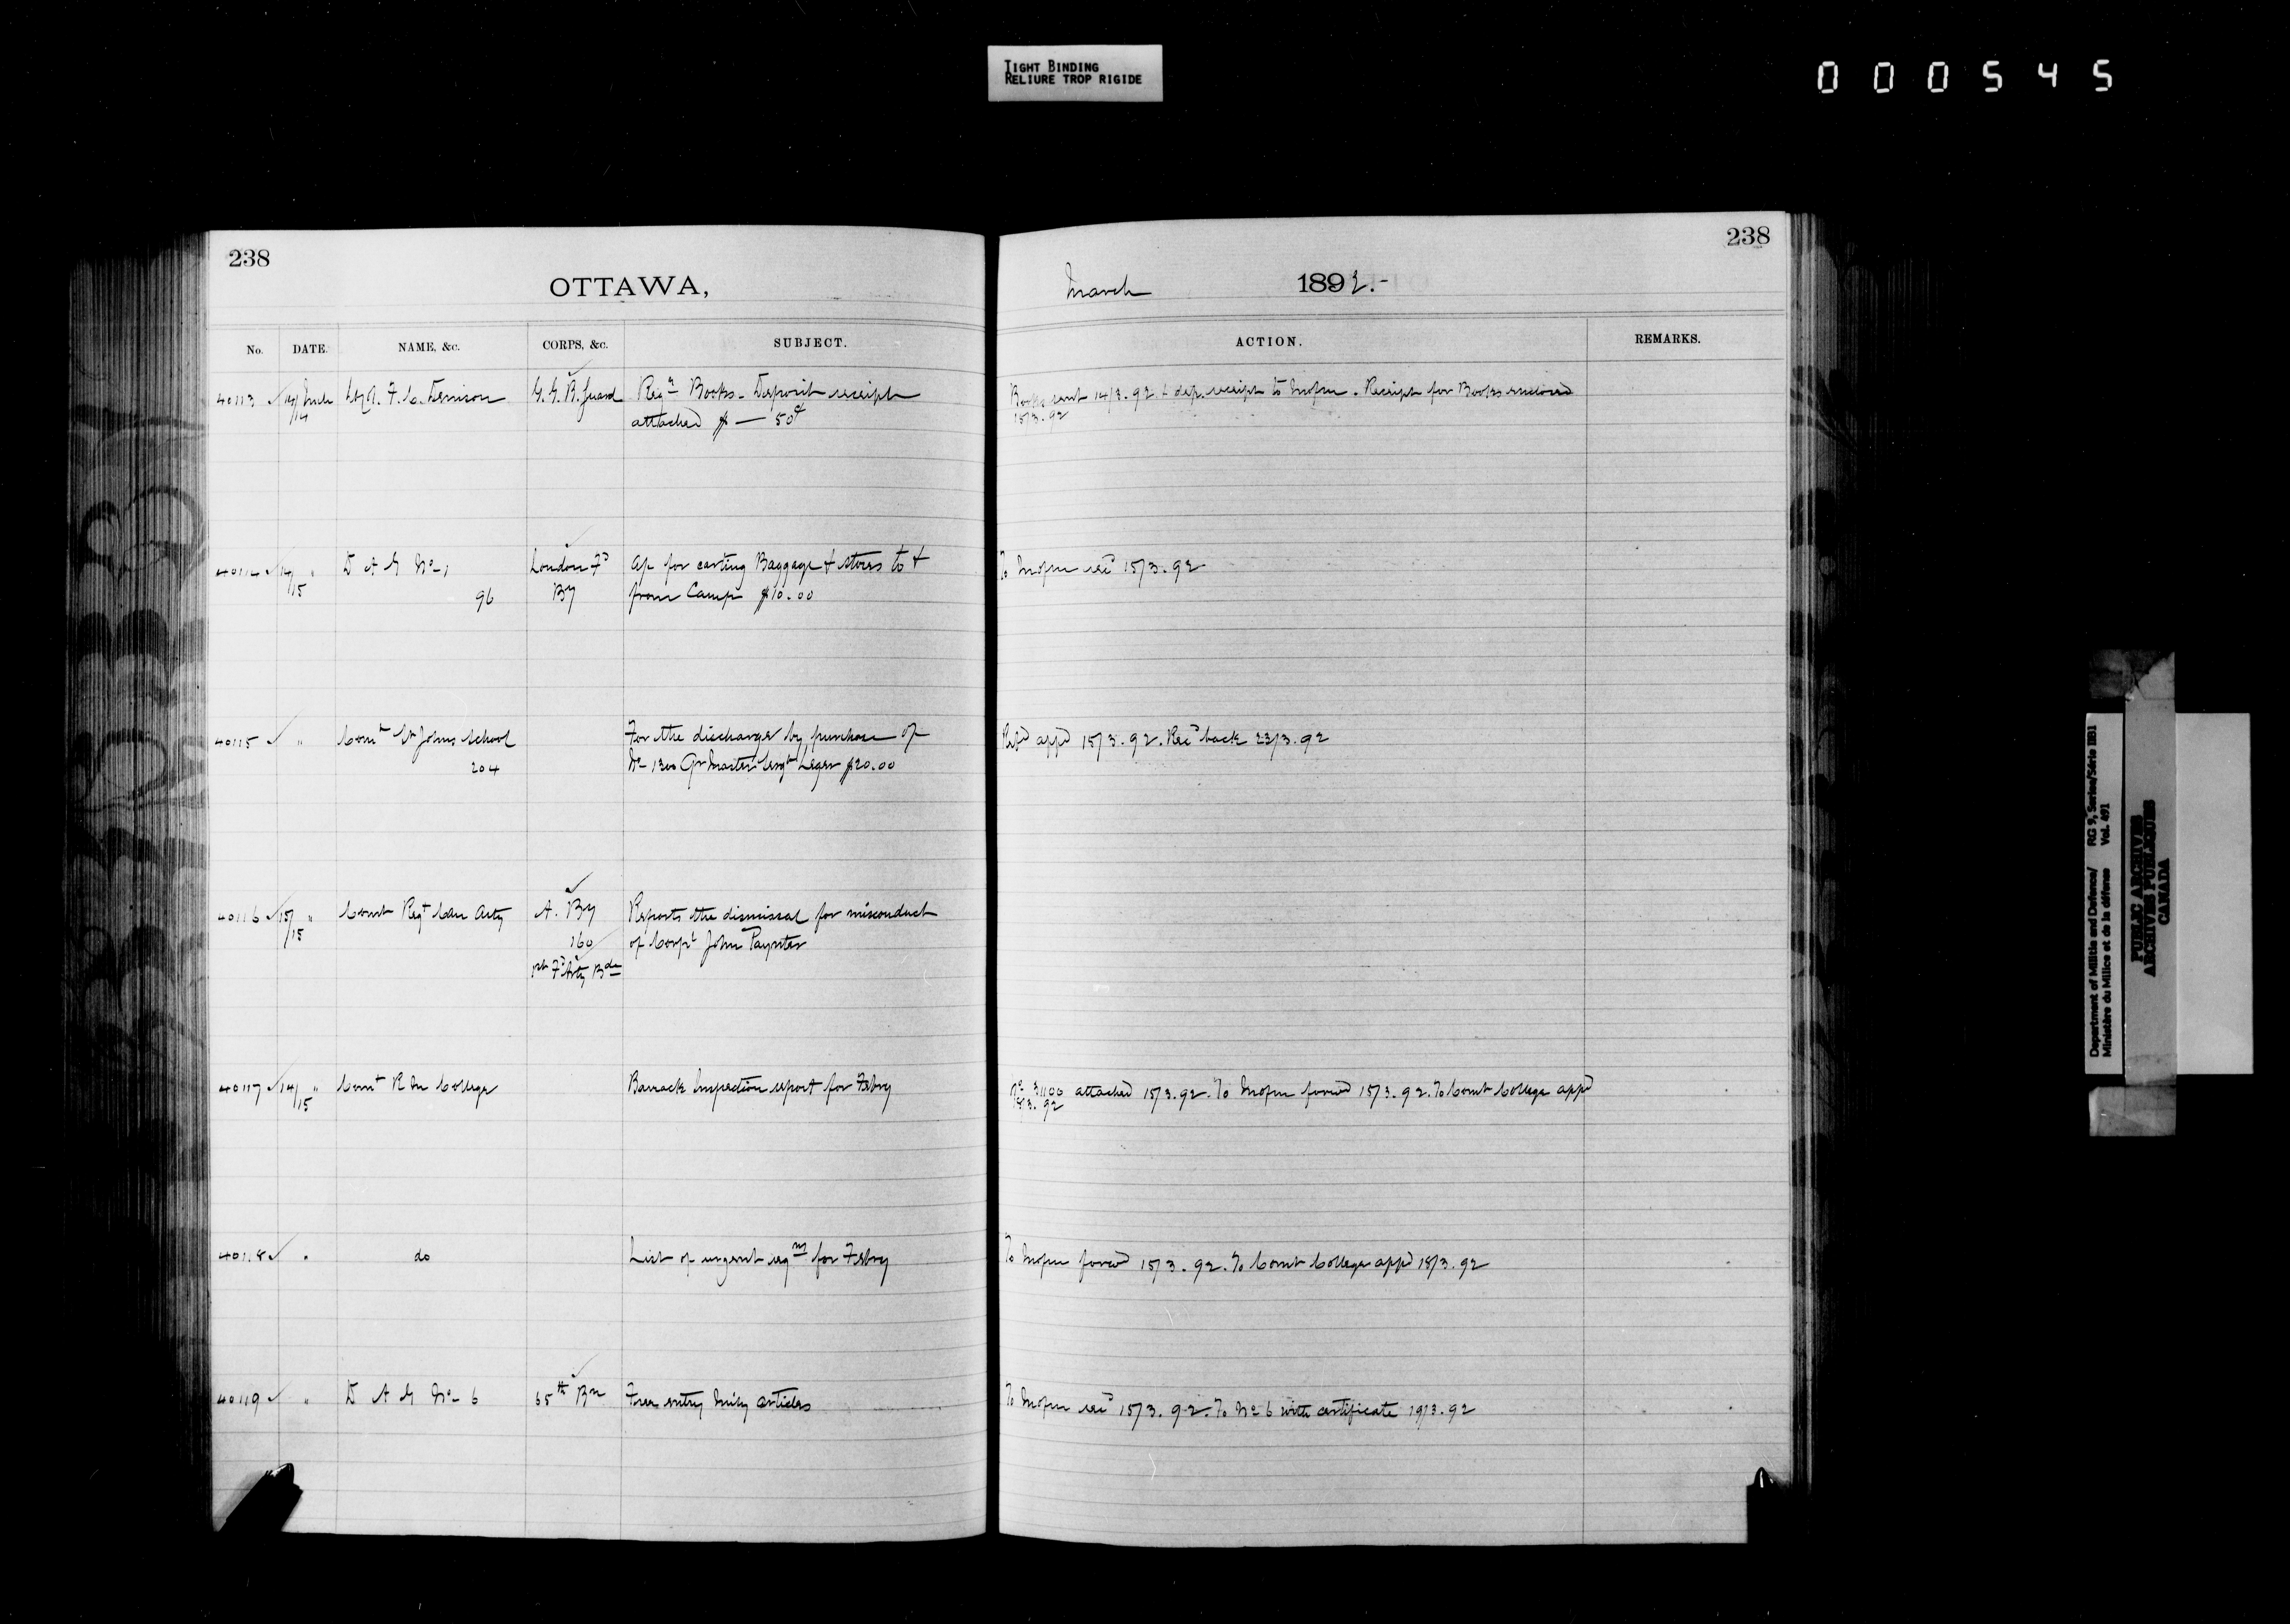 TIGHT BINDING
RELIURE TROP RIGIDE
000545
238
OTTAWA,
No. DATE. NAME, &c. CORPS, &c. SUBJECT.
40113 14/ Mch Lt Col. F. C. Denison G. G. B. Guard Regl Books - Deposit receipt
/14 attached $ — 50¢
40114 14/ " D A G No 1 London Fd a/c for carting Baggage & stores to &
/15 96 By from Camp $10.00
40115 " Comt St Johns School For the discharge by purchase of
204 No 1300 Qr Master Sergt Leger $20.00
40116 15/ " Comt Regt Can Arty A. By Reports the dismissal for misconduct
/15 160 of Corpl John Paynter
1st Fd Arty Bde
40117 14/ " Comt R M College Barrack Inspection report for Febry
/15
40118 " do List of urgent reqns for Febry
40119 " D A G No 6 65th Bn Free entry Mily articles
238
March 1892.-
ACTION. REMARKS.
Books sent 14/3.92 & dep. receipt to Mofm. Receipt for Books enclosed
15/3.92
To Mofm recd 15/3.92
Repd appd 15/3.92. Recd back 23/3.92
No 31100 attached 15/3.92. To Mofm forwd 15/3.92. To Comt College appd
18/3.92
To Mofm forwd 15/3.92. To Comt College appd 18/3.92
To Mofm recd 15/3.92. To No 6 with certificate 19/3.92
Department of Militia and Defence/ RG 9, Series/Série IIB1
Ministère du Milice et de la défense Vol. 491
PUBLIC ARCHIVES
ARCHIVES PUBLIQUES
CANADA